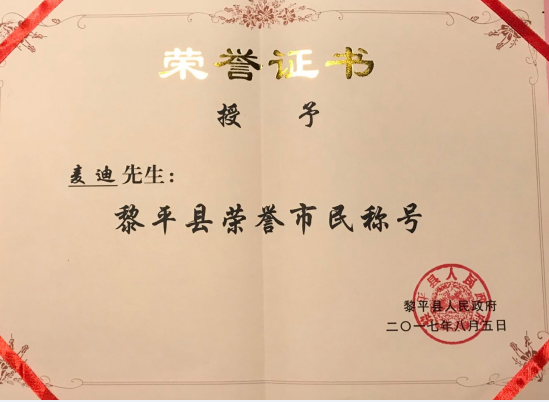 荣誉证书
授 予
麦迪先生：
黎平县荣誉市民称号
黎平县人民政府
二〇一七年八月五日